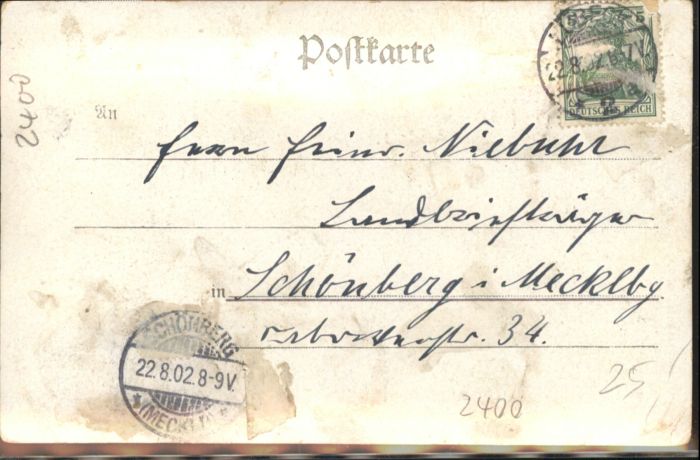 Postkarte
22.8.02.6-7V.
DEUTSCHES REICH
2400
An
Herrn Heinr. Niebuhr
Landbriefträger
in Schönberg i Mecklbg
str. 34.
SCHÖNBERG
22.8.02.8-9V.
*(MECKLB)*
2400
25